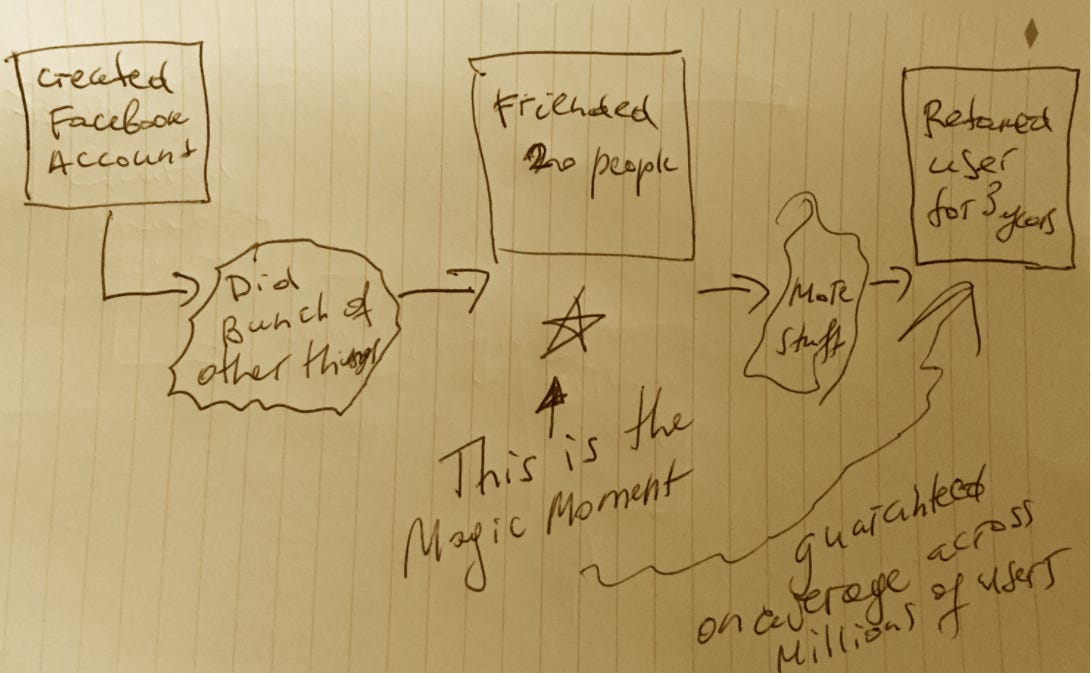 Created
Facebook
Account
Did
Bunch of
other things
Friended
20 people
This is the
Magic Moment
More
Stuff
Retained
user
for 3 years
guaranteed
on average across
Millions of users